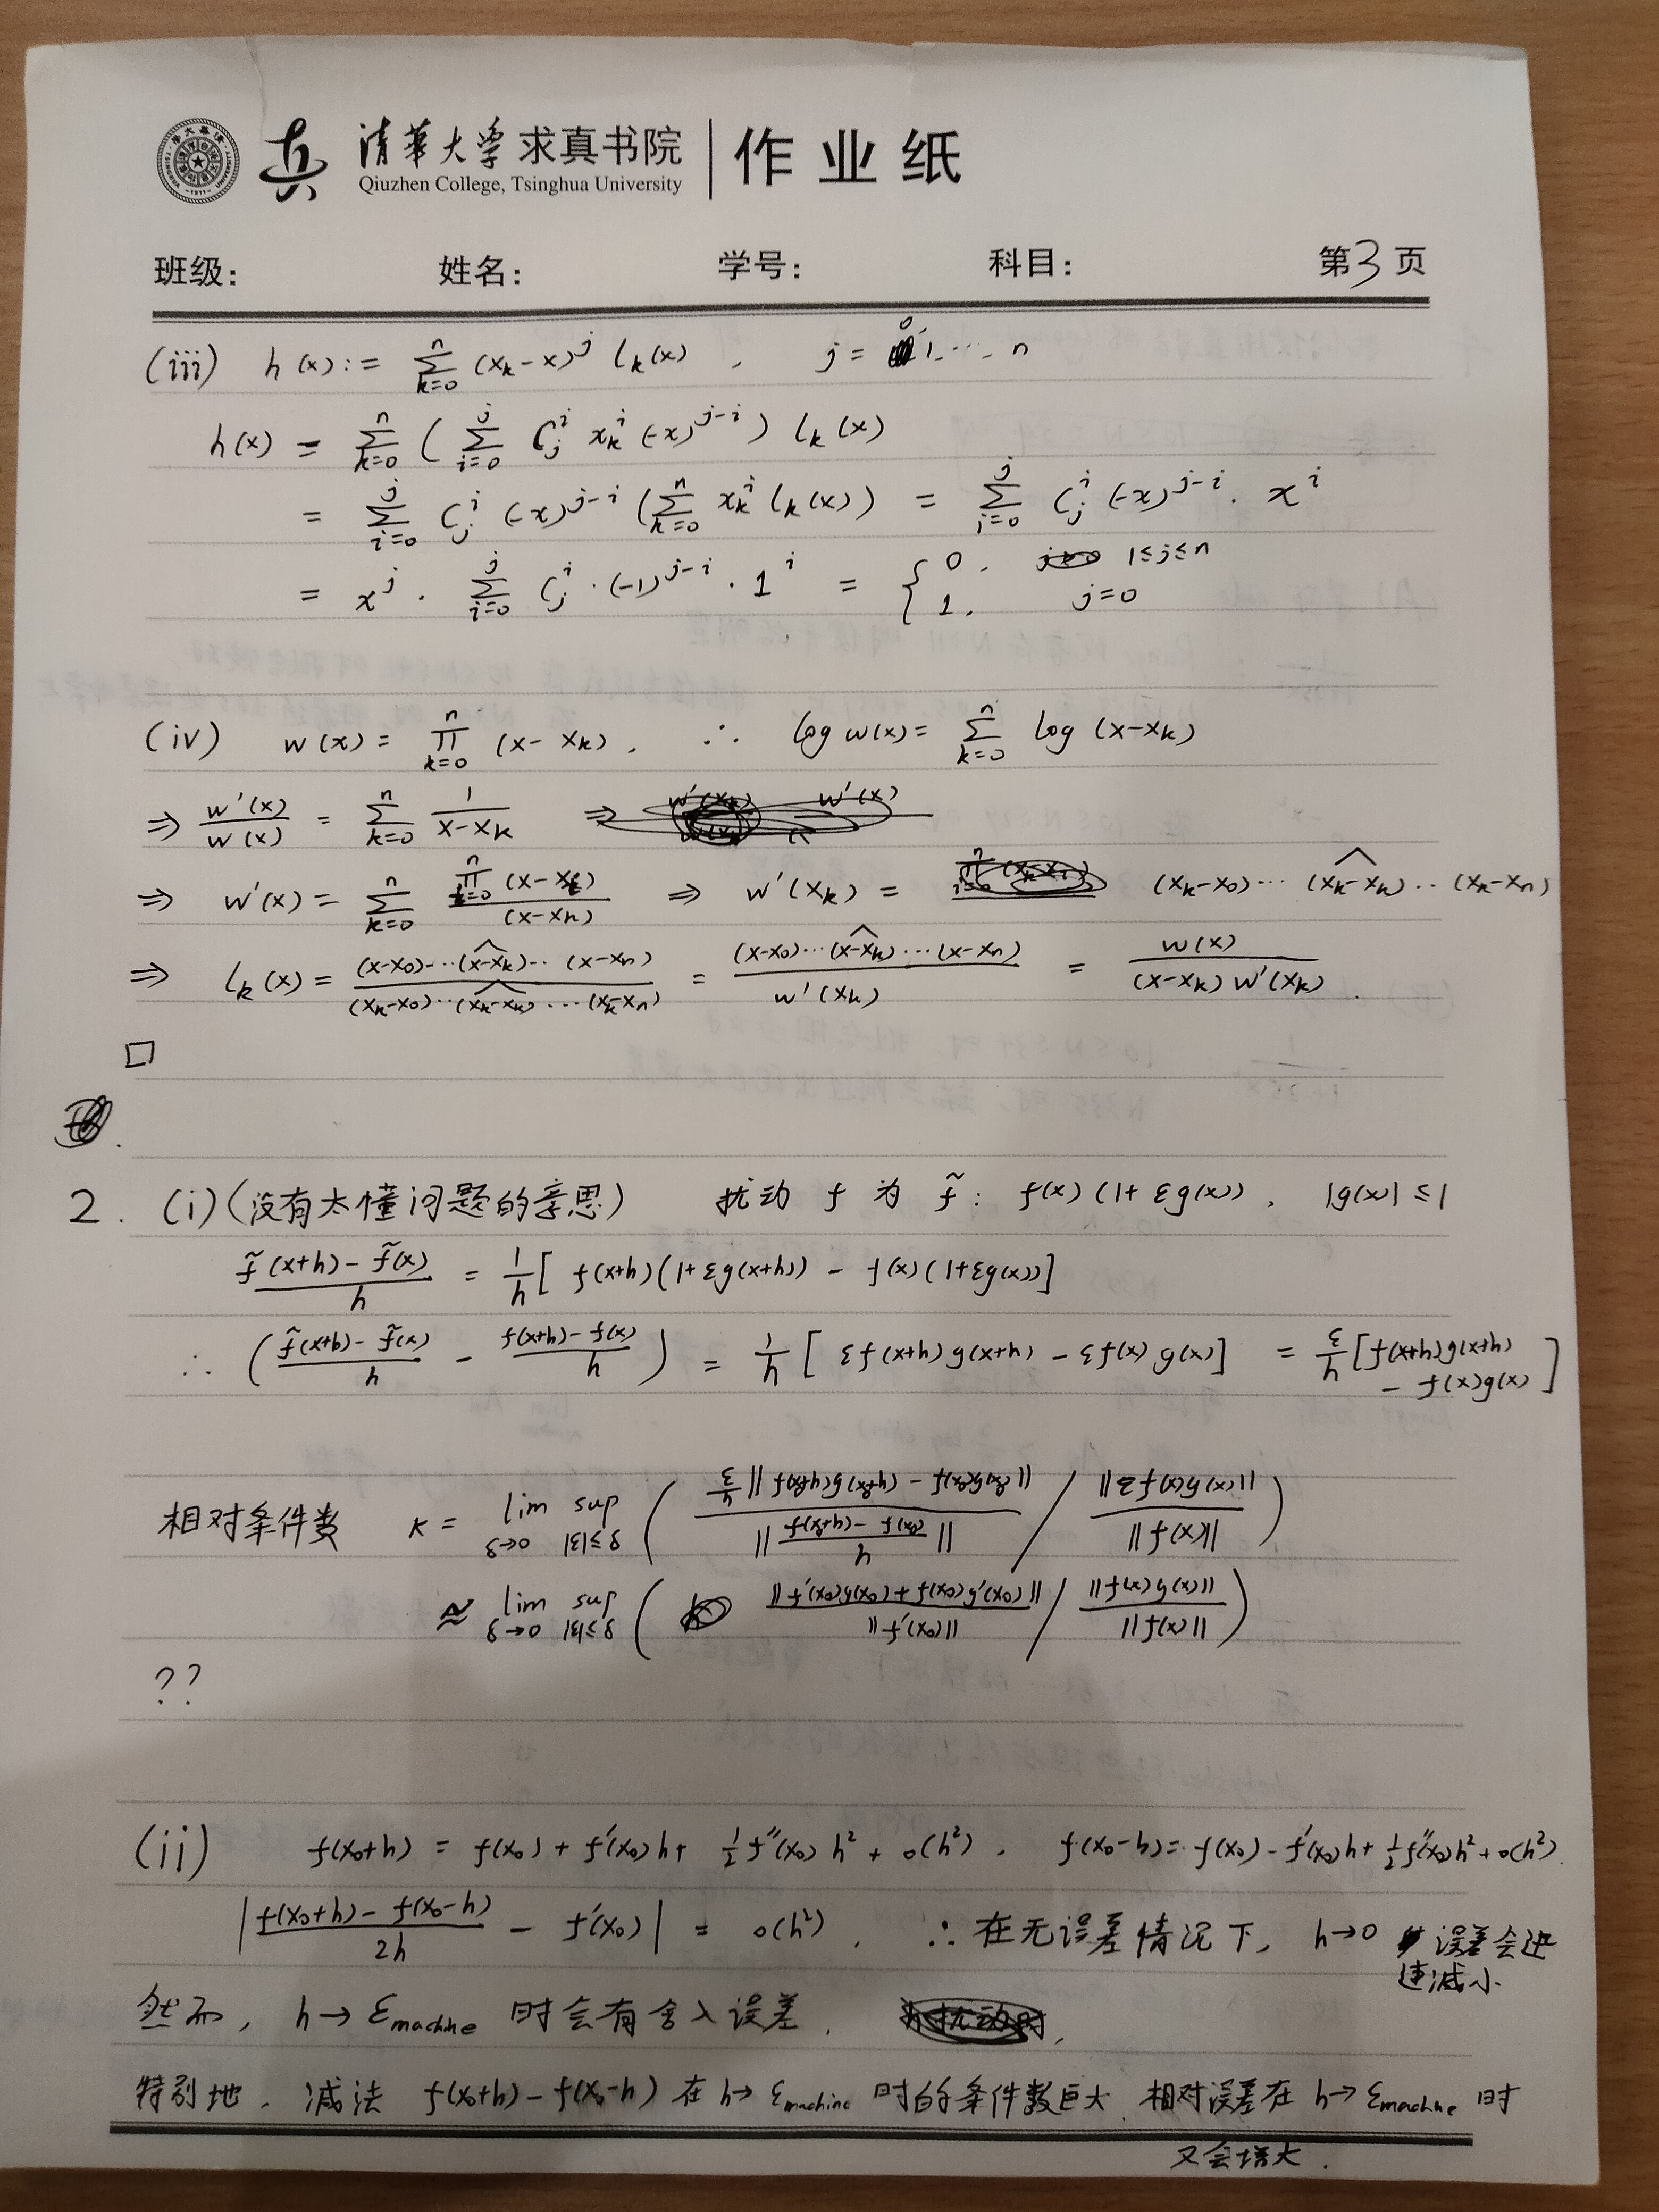 清華大学 求真书院 作业纸
Qiuzhen College, Tsinghua University
班级: 姓名: 学号: 科目: 第3页
(iii) h(x) := ∑_{k=0}^{n} (x_k-x)^j l_k(x) , j = 0, 1, ... n
h(x) = ∑_{k=0}^{n} ( ∑_{i=0}^{j} C_j^i x_k^i (-x)^{j-i} ) l_k(x)
= ∑_{i=0}^{j} C_j^i (-x)^{j-i} ( ∑_{k=0}^{n} x_k^i l_k(x) ) = ∑_{i=0}^{j} C_j^i (-x)^{j-i} · x^i
= x^j · ∑_{i=0}^{j} C_j^i · (-1)^{j-i} · 1^i = { 0, 1≤j≤n
1, j=0
(iv) w(x) = ∏_{k=0}^{n} (x-x_k) , ∴ log w(x) = ∑_{k=0}^{n} log (x-x_k)
⇒ w'(x)/w(x) = ∑_{k=0}^{n} 1/(x-x_k)
⇒ w'(x) = ∑_{k=0}^{n} ∏_{i=0}^{n} (x-x_i)/(x-x_k) ⇒ w'(x_k) = (x_k-x_0)···(x_k-x_k)^··(x_k-x_n)
⇒ l_k(x) = (x-x_0)···(x-x_k)^··(x-x_n)/(x_k-x_0)···(x_k-x_k)^···(x_k-x_n) = (x-x_0)···(x-x_k)^···(x-x_n)/w'(x_k) = w(x)/(x-x_k)w'(x_k) .
□
2. (i) (没有太懂问题的意思) 扰动 f 为 f̃ : f(x)(1+εg(x)) , |g(x)|≤1
(f̃(x+h)-f̃(x))/h = 1/h [ f(x+h)(1+εg(x+h)) - f(x)(1+εg(x)) ]
∴ ( (f̃(x+h)-f̃(x))/h - (f(x+h)-f(x))/h ) = 1/h [ εf(x+h)g(x+h) - εf(x)g(x) ] = ε/h [ f(x+h)g(x+h) - f(x)g(x) ]
相对条件数 κ = lim_{δ→0} sup_{|ε|≤δ} ( ε/h ||f(x_0+h)g(x_0+h) - f(x_0)g(x_0)|| / || (f(x_0+h)-f(x_0))/h || / ||εf(x)g(x)||/||f(x)|| )
≈ lim_{δ→0} sup_{|ε|≤δ} ( ||f'(x_0)g(x_0)+f(x_0)g'(x_0)||/||f'(x_0)|| / ||f(x)g(x)||/||f(x)|| )
??
(ii) f(x_0+h) = f(x_0) + f'(x_0)h + ½f''(x_0)h² + o(h²) , f(x_0-h) = f(x_0) - f'(x_0)h + ½f''(x_0)h² + o(h²)
| (f(x_0+h)-f(x_0-h))/2h - f'(x_0) | = o(h²) , ∴ 在无误差情况下, h→0 误差会迅
速减小
然而, h→ε_machine 时会有舍入误差.
特别地, 减法 f(x_0+h)-f(x_0-h) 在 h→ε_machine 时的条件数巨大, 相对误差在 h→ε_machine 时
又会增大.